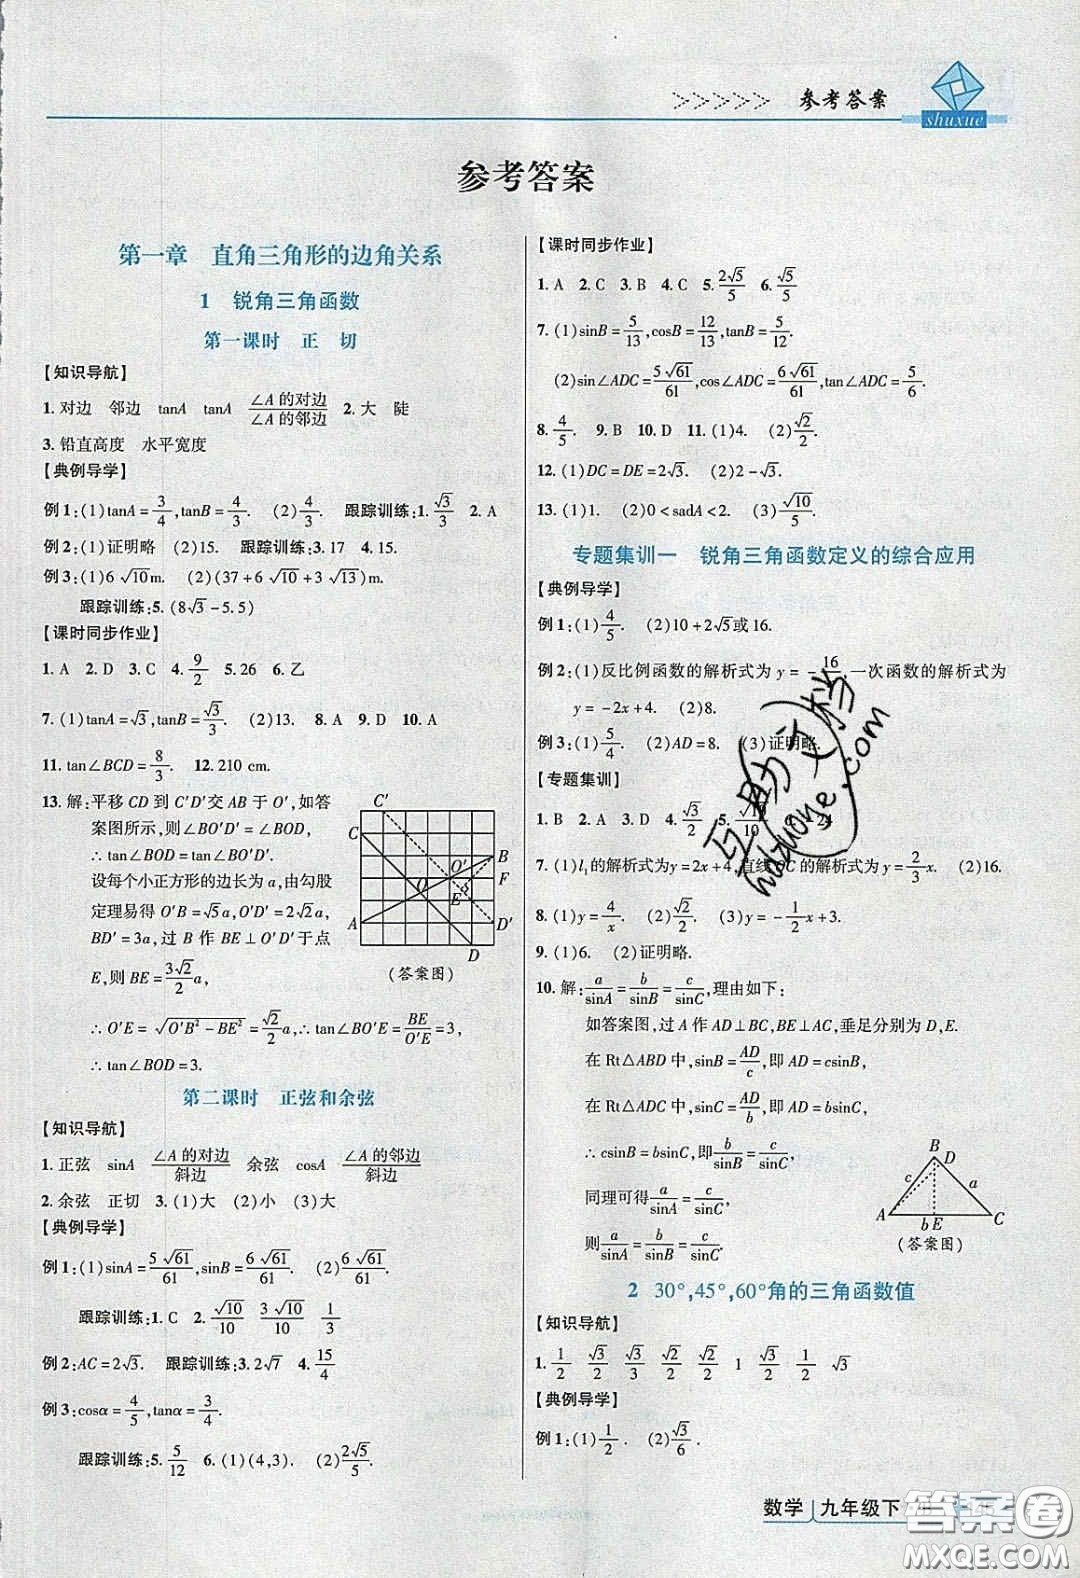 >>>>> 参考答案
shuxue
参考答案
第一章 直角三角形的边角关系
1 锐角三角函数
第一课时 正 切
【知识导航】
1. 对边 邻边 tanA tanA ∠A的对边/∠A的邻边 2. 大 陡
3. 铅直高度 水平宽度
【典例导学】
例1:(1)tanA=3/4,tanB=4/3. (2)4/3. 跟踪训练:1. √3/3 2. A
例2:(1)证明略 (2)15. 跟踪训练:3. 17 4. 15.
例3:(1)6√10m. (2)(37+6√10+3√13)m.
跟踪训练:5. (8√3-5.5)
【课时同步作业】
1. A 2. D 3. C 4. 9/2 5. 26 6. 乙
7. (1)tanA=√3,tanB=√3/3. (2)13. 8. A 9. D 10. A
11. tan∠BCD=8/3. 12. 210 cm.
13. 解:平移CD到C′D′交AB于O′,如答
案图所示,则∠BO′D′=∠BOD,
∴tan∠BOD=tan∠BO′D′.
设每个小正方形的边长为a,由勾股
定理易得O′B=√5a,O′D′=2√2a,
BD′=3a,过B作BE⊥O′D′于点
E,则BE=3√2/2a,
C′
C
O′
B
O
F
E
A
D′
D
(答案图)
∴O′E=√(O′B²-BE²)=√2/2a,∴tan∠BO′E=BE/O′E=3,
∴tan∠BOD=3.
第二课时 正弦和余弦
【知识导航】
1. 正弦 sinA ∠A的对边/斜边 余弦 cosA ∠A的邻边/斜边
2. 余弦 正切 3. (1)大 (2)小 (3)大
【典例导学】
例1:(1)sinA=5√61/61,sinB=6√61/61. (2)6√61/61.
跟踪训练:1. C 2. √10/10 3√10/10 1/3
例2:AC=2√3. 跟踪训练:3. 2√7 4. 15/4
例3:cosα=4/5,tanα=3/4.
跟踪训练:5. 5/12 6. (1)(4,3). (2)2√5/5.
【课时同步作业】
1. A 2. C 3. B 4. C 5. 2√5/5 6. √5/5
7. (1)sinB=5/13,cosB=12/13,tanB=5/12.
(2)sin∠ADC=5√61/61,cos∠ADC=6√61/61,tan∠ADC=5/6.
8. 4/5. 9. B 10. D 11. (1)4. (2)√2/2.
12. (1)DC=DE=2√3. (2)2-√3.
13. (1)1. (2)0<sadA<2. (3)√10/5.
专题集训一 锐角三角函数定义的综合应用
【典例导学】
例1:(1)4/5. (2)10+2√5或16.
例2:(1)反比例函数的解析式为y=-16 一次函数的解析式为
y=-2x+4. (2)8.
例3:(1)5/4 (2)AD=8. (3)证明略.
【专题集训】
1. B 2. A 3. D 4. √3/2 5. √10/10 6. 24
7. (1)l₁的解析式为y=2x+4,直线 C的解析式为y=2/3x. (2)16.
8. (1)y=4/x. (2)√2/2. (3)y=-1/2x+3.
9. (1)6. (2)证明略.
10. 解:a/sinA=b/sinB=c/sinC,理由如下:
如答案图,过A作AD⊥BC,BE⊥AC,垂足分别为D,E.
在Rt△ABD中,sinB=AD/c,即AD=csinB,
在Rt△ADC中,sinB=AD/b,即AD=bsinC,
∴csinB=bsinC,即b/sinB=c/sinC,
同理可得a/sinA=c/sinC,
则a/sinA=b/sinB=c/sinC.
B
D
c
a
A
b
E
C
(答案图)
2 30°,45°,60°角的三角函数值
【知识导航】
1. 1/2 √3/2 √3/2 √2/2 √2/2 1 √3/2 1/2 √3
【典例导学】
例1:(1)1/2. (2)√3/6.
互助文档
huzuoye.com
数学 九年级下
答案圈
MXQE.COM